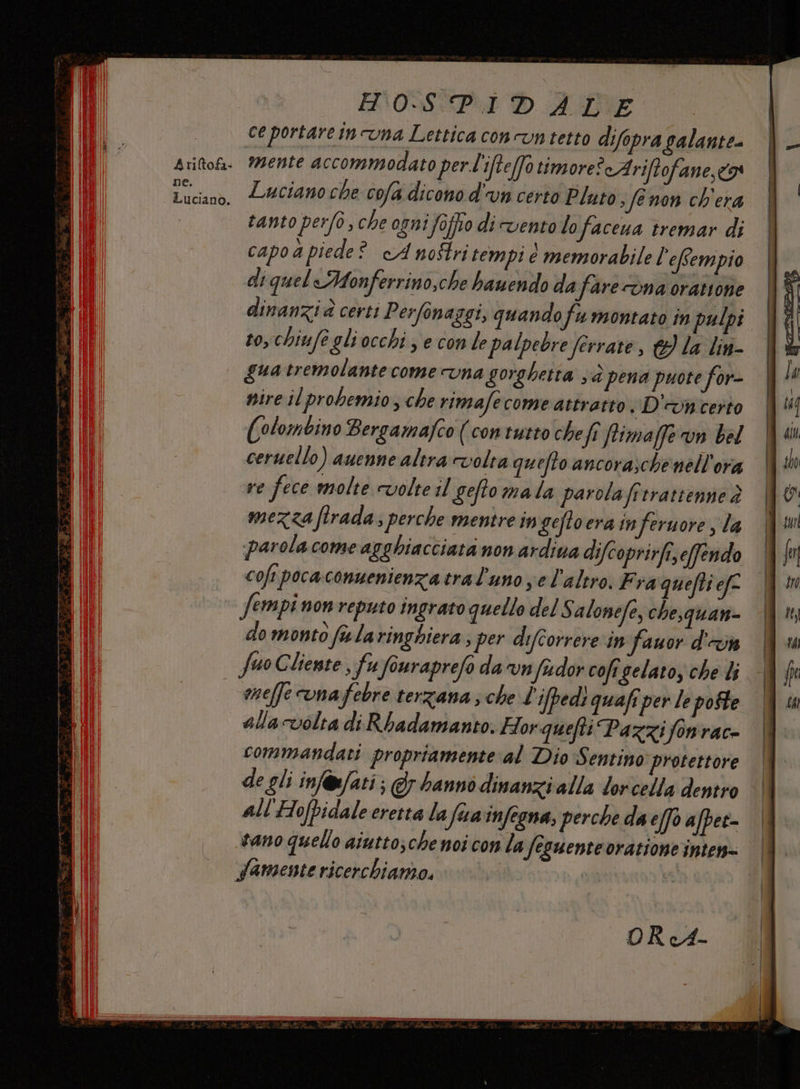 HOSPIDALE
ce portare in vna Lettica con vn tetto disopra galante-
mente accommodato per l'istesso timore? Aristofane, &
Aristofa-
ne.
Luciano che cosa dicono d'vn certo Pluto, se non ch'era
Luciano.
tanto perso, che ogni soffio di vento lo faceua tremar di
capo à piede? A nostri tempi è memorabile l'essempio
di quel Monferrino, che hauendo da fare vna oratione
dinanzi à certi Personaggi, quando fu montato in pulpi
to, chiuse gli occhi, e con le palpebre serrate, & la lin-
gua tremolante come vna gorghetta, à pena puote for-
nire il prohemio, che rimase come attratto. D'vn certo
Colombino Bergamasco (con tutto che si stimasse vn bel
ceruello) auenne altra volta questo ancora; che nell'ora
re fece molte volte il gesto ma la parola si trattenne à
mezza strada, perche mentre in gesto era in feruore, la
parola come agghiacciata non ardiua discoprirsi, essendo
cosi poca conuenienza tra l'uno, e l'altro. Fra questi es-
sempi non reputo ingrato quello del Salonese, che, quan-
do montò sù la ringhiera, per discorrere in fauor d'vn
suo Cliente, fu sourapreso da vn sudor cosi gelato, che li
messe vna febre terzana, che l'ispedì quasi per le poste
alla volta di Rhadamanto. Hor questi Pazzi son rac-
commandati propriamente al Dio Sentino protettore
de gli insensati; & hanno dinanzi alla lor cella dentro
all'Hospidale eretta la sua insegna, perche da esso aspet-
tano quello aiutto, che noi con la seguente oratione inten-
samente ricerchiamo.
ORA-